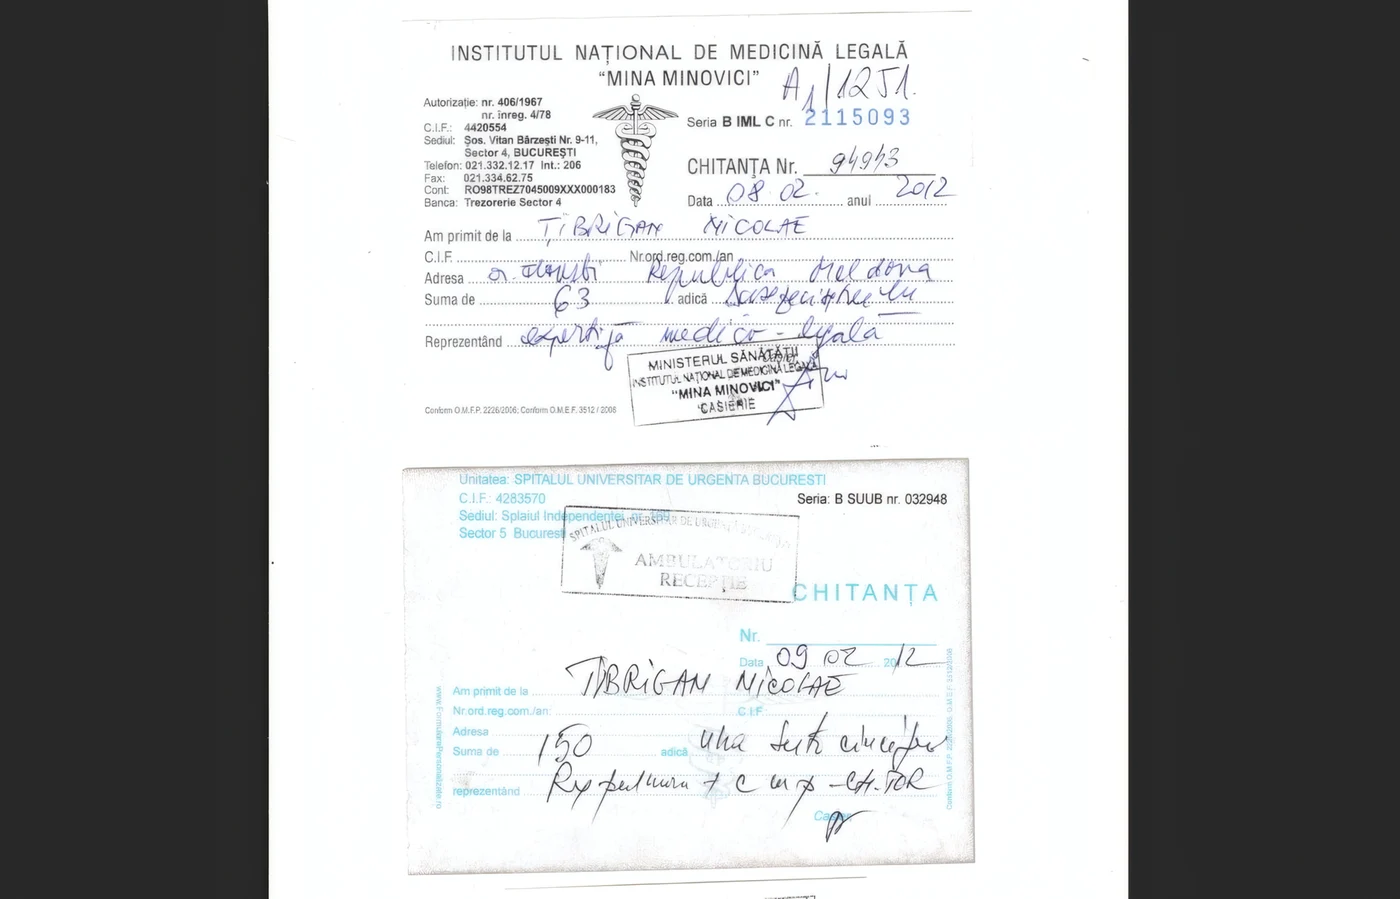 INSTITUTUL NAȚIONAL DE MEDICINĂ LEGALĂ
"MINA MINOVICI"
A1/1251.
Autorizație: nr. 406/1967
nr. înreg. 4/78
C.I.F.: 4420554
Sediul: Șos. Vitan Bârzești Nr. 9-11,
Sector 4, BUCUREȘTI
Telefon: 021.332.12.17 Int.: 206
Fax: 021.334.62.75
Cont: RO98TREZ7045009XXX000183
Banca: Trezorerie Sector 4
Seria B IML C nr. 2115093
CHITANȚA Nr. 94943
Data 08 02. anul 2012
Am primit de la ȚIBRIGAN NICOLAE
C.I.F. Nr.ord.reg.com./an
Adresa Republica Moldova
Suma de 63 adică lei
Reprezentând expertiză medico-legală
MINISTERUL SĂNĂTĂȚII
INSTITUTUL NAȚIONAL DE MEDICINĂ LEGALĂ
"MINA MINOVICI"
CASIERIE
Conform O.M.F.P. 2226/2006; Conform O.M.E.F. 3512 / 2008
Unitatea: SPITALUL UNIVERSITAR DE URGENTA BUCURESTI
C.I.F.: 4283570
Seria: B SUUB nr. 032948
Sediul: Splaiul Independentei, nr. 169
Sector 5 Bucuresti
SPITALUL UNIVERSITAR DE
AMBULATORIU
RECEPȚIE
CHITANȚA
Nr.
Data 09 02 2012
Am primit de la ȚIBRIGAN NICOLAE
Nr.ord.reg.com./an: C.I.F.
Adresa
Suma de 150 adică una sută cincizeci
reprezentând Rx
Casier
www.FormularePersonalizate.ro